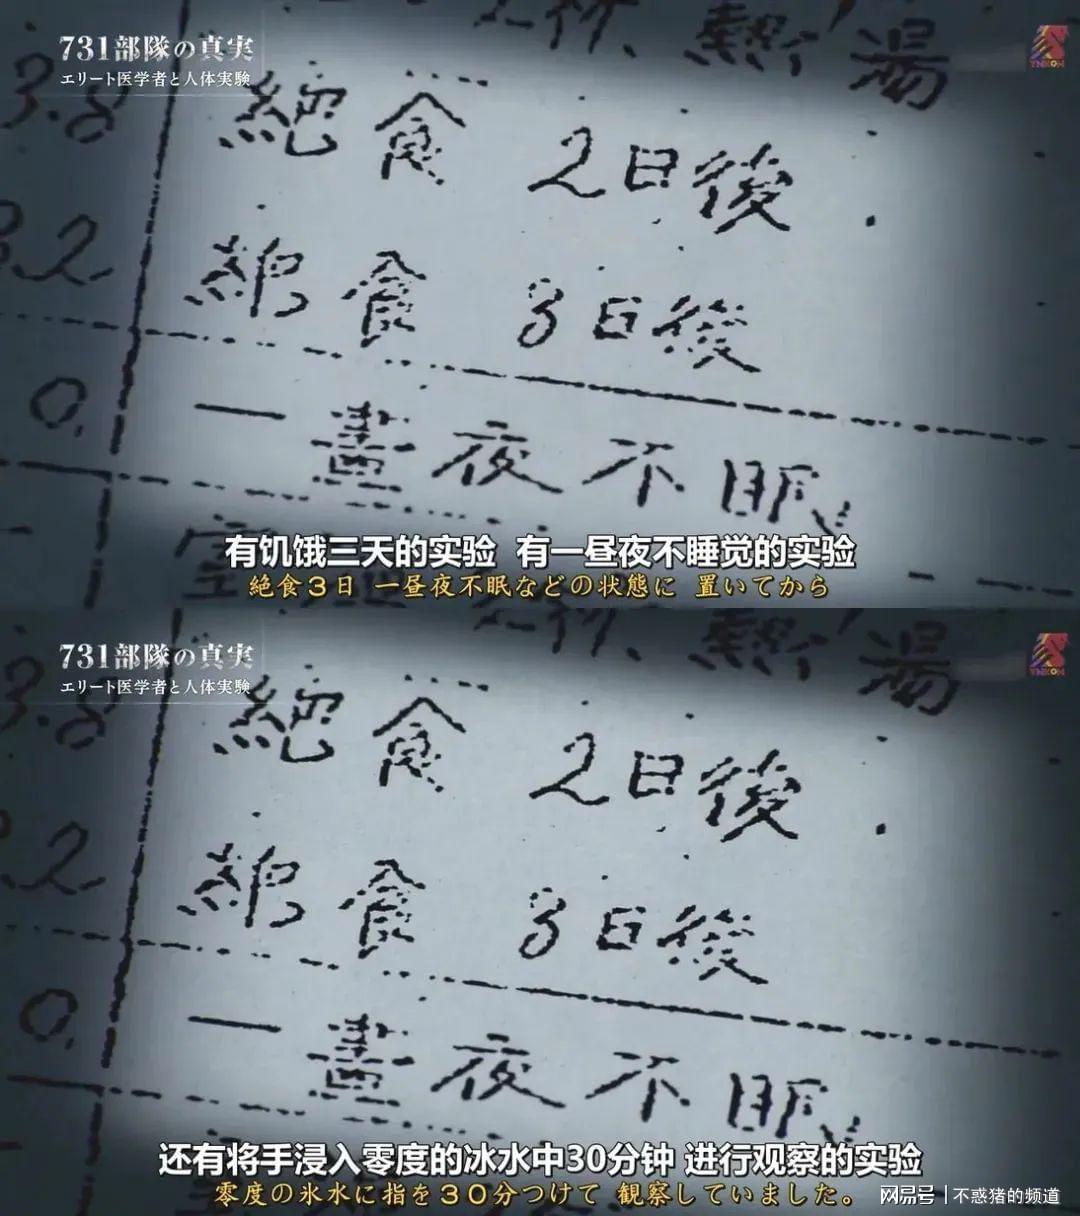 731部隊の真実
エリート医学者と人体実験
TNKON
熱湯
3.8 絶食 2日後
3.2 絶食 3日後
0. 一晝夜不眠
有饥饿三天的实验 有一昼夜不睡觉的实验
絶食3日 一昼夜不眠などの状態に 置いてから
731部隊の真実
エリート医学者と人体実験
TNKON
熱湯
3.8 絶食 2日後
2 絶食 3日後
0. 一晝夜不眠
还有将手浸入零度的冰水中30分钟 进行观察的实验
零度の氷水に指を30分つけて 観察していました。
网易号 | 不惑猪的频道